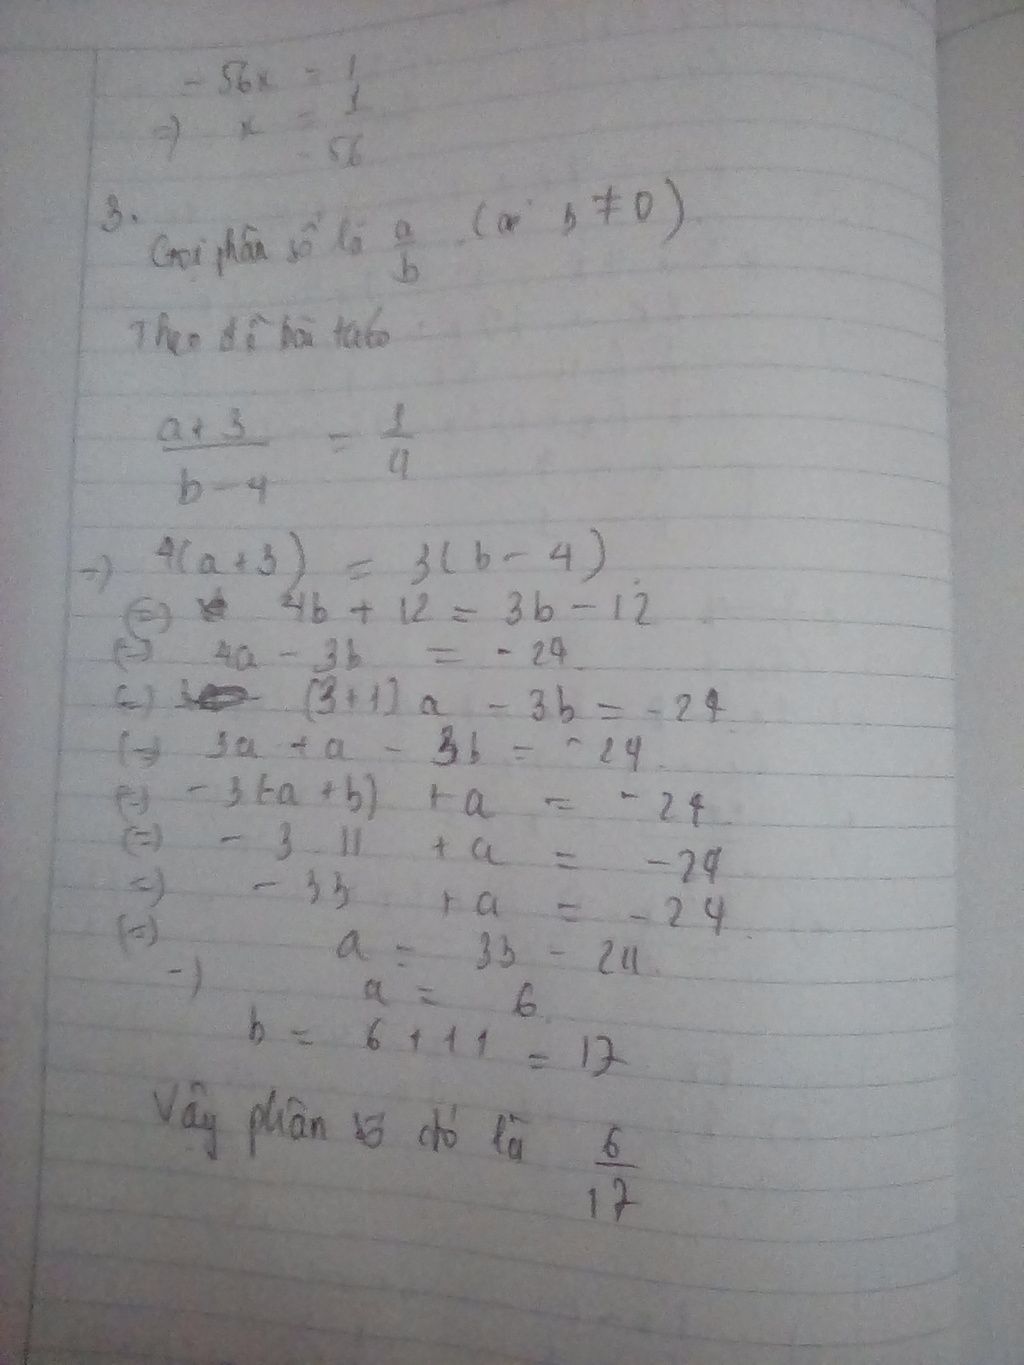 - 56x = 1
=) x = 1
- 56
3.
Gọi phân số là a/b (a b ≠ 0)
Theo đề bài ta có
a+3 / b-4 = 1/4
=) 4(a+3) = 3(b-4)
(=) 4b + 12 = 3b - 12
(=) 4a - 3b = -24
(=) (3+1)a - 3b = -24
(=) 3a + a - 3b = -24
(=) -3(-a+b) + a = -24
(=) - 3 11 + a = -24
=) - 33 + a = -24
(=) a = 33 - 24
=) a = 6
b = 6 + 11 = 17
Vậy phân số đó là 6/17